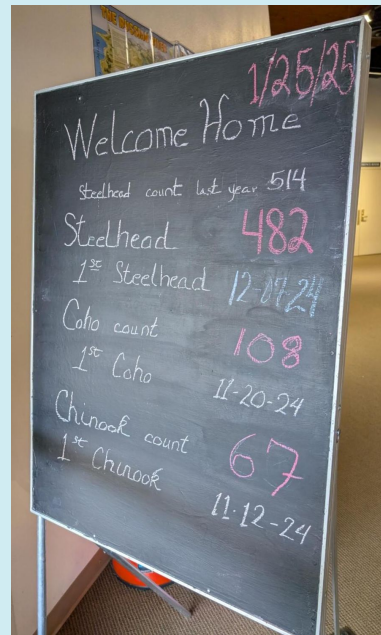 1/25/25
Welcome Home
Steelhead count last year 514
Steelhead 482
1st Steelhead 12-07-24
Coho count 108
1st Coho 11-20-24
Chinook count 67
1st Chinook 11-12-24